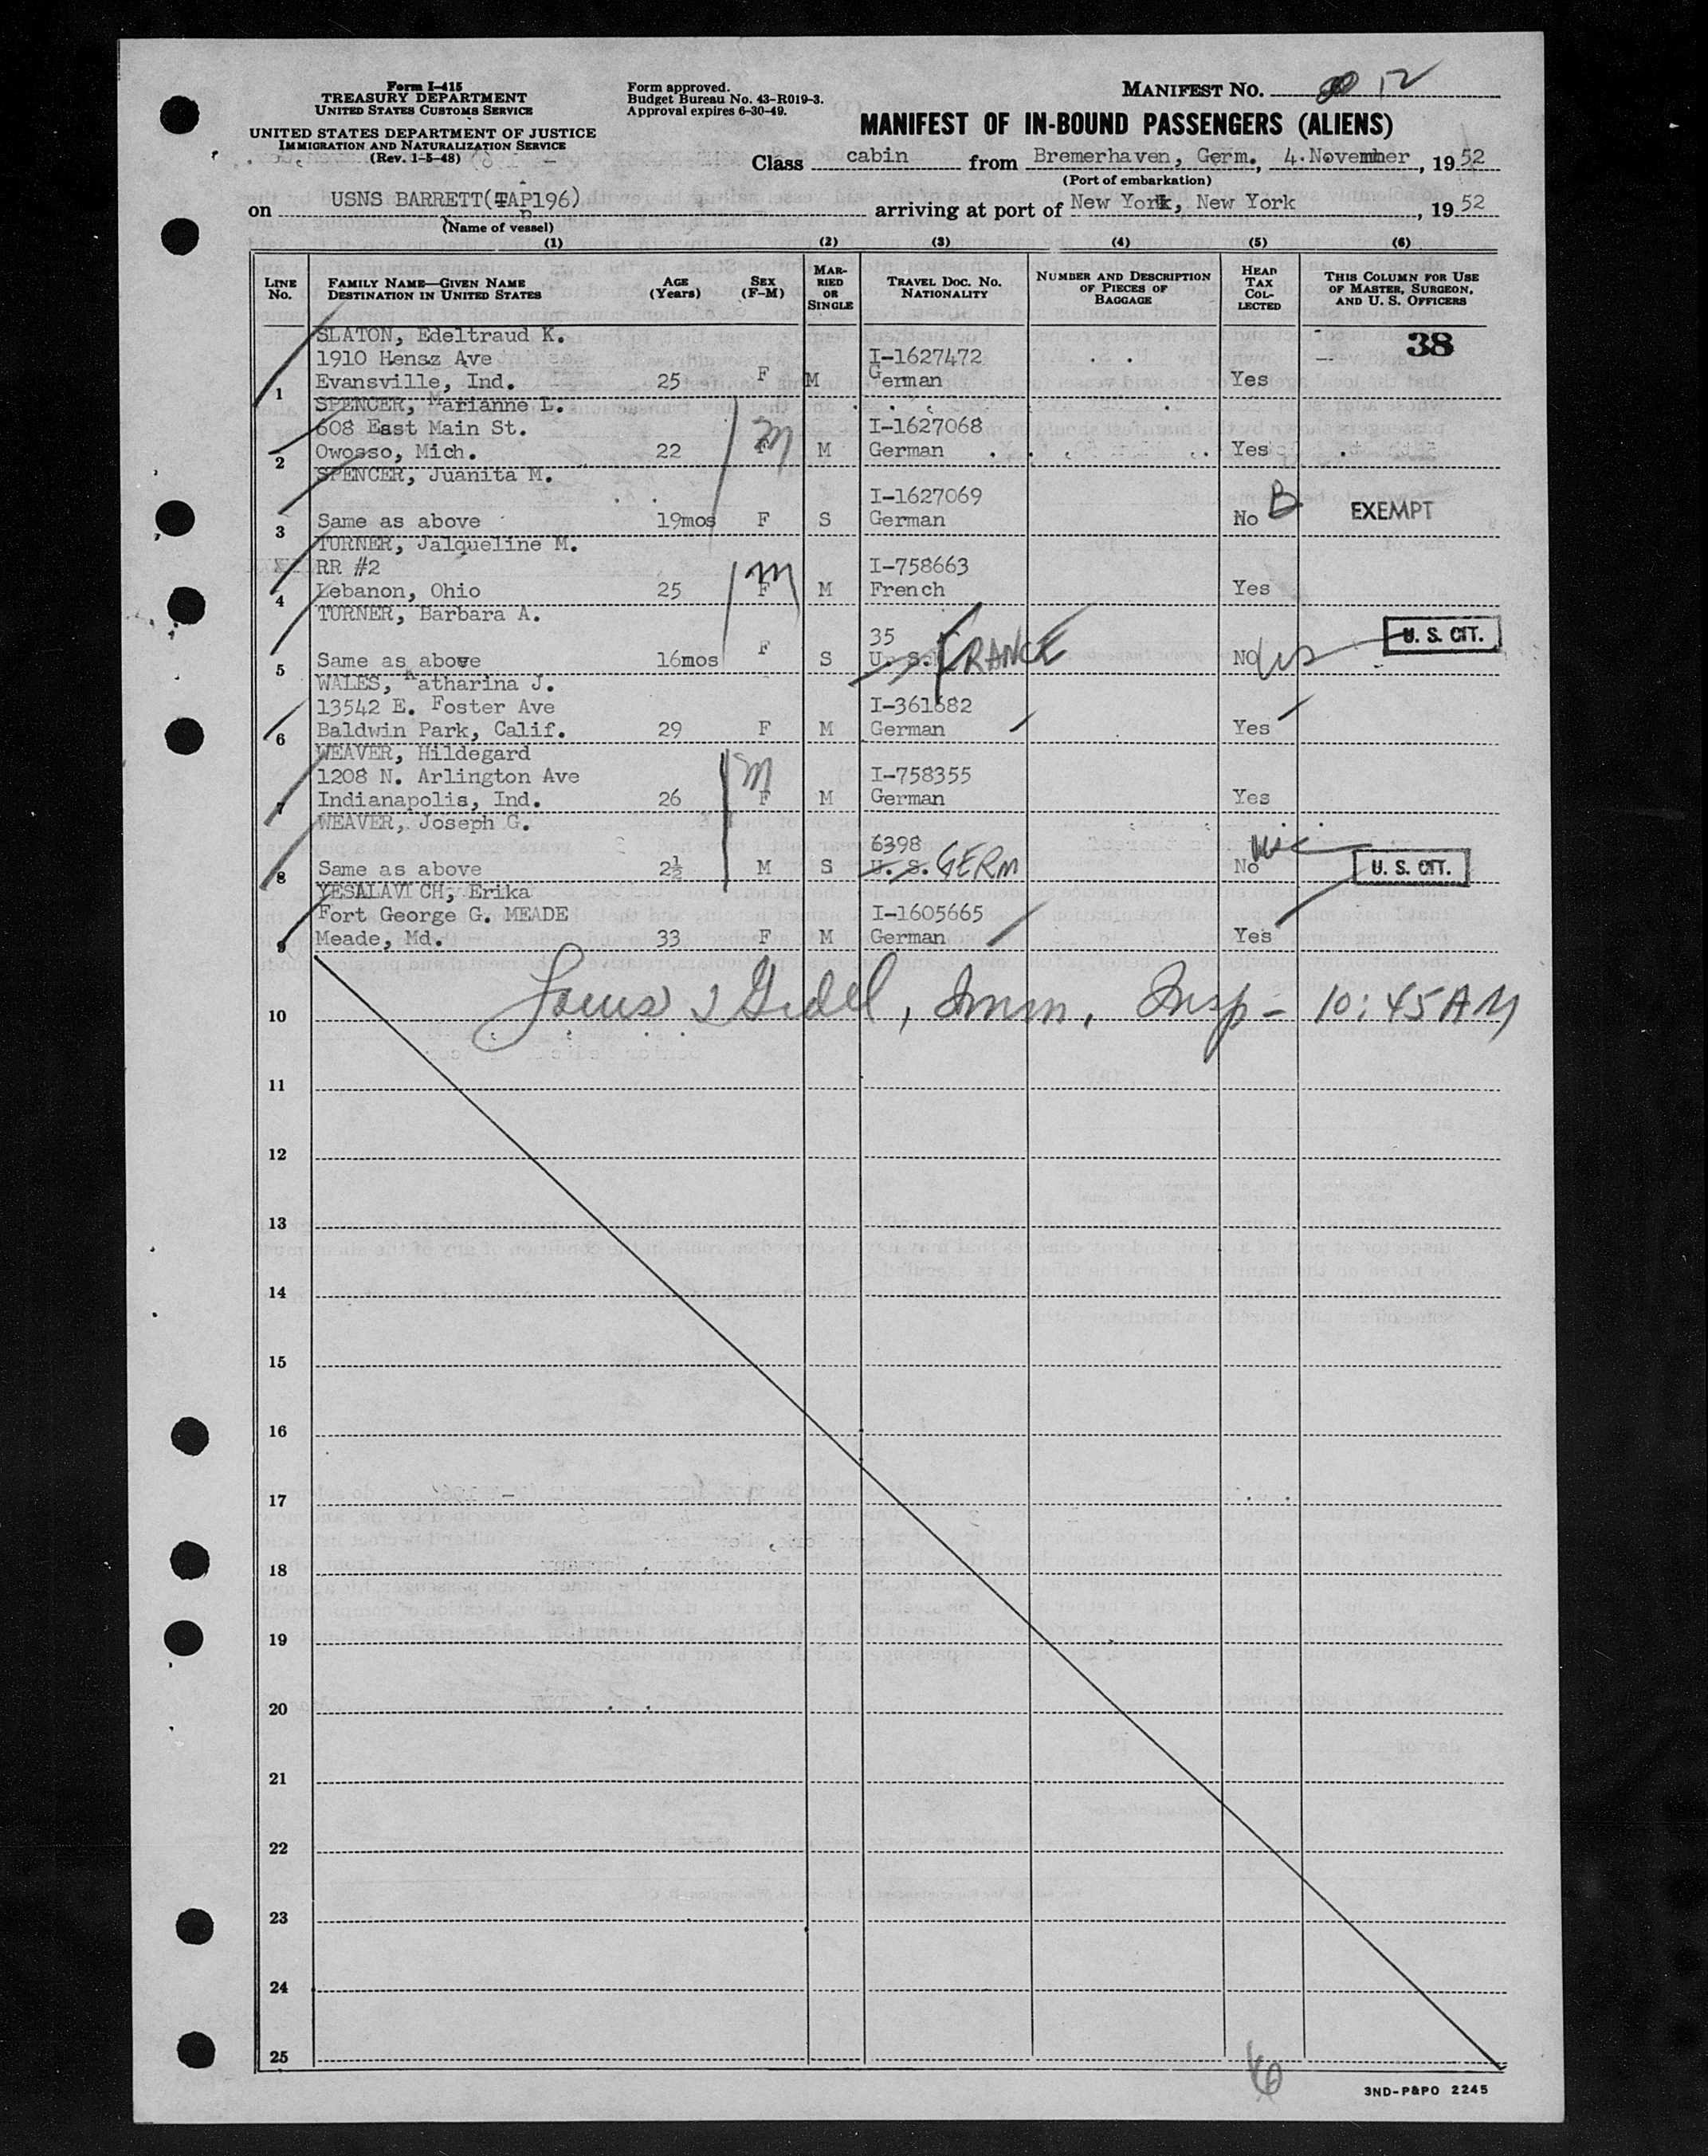 Form I-415
TREASURY DEPARTMENT
UNITED STATES CUSTOMS SERVICE
UNITED STATES DEPARTMENT OF JUSTICE
IMMIGRATION AND NATURALIZATION SERVICE
(Rev. 1-5-48)
Form approved.
Budget Bureau No. 43-R019-3.
Approval expires 6-30-49.
MANIFEST NO. 12
MANIFEST OF IN-BOUND PASSENGERS (ALIENS)
Class cabin from Bremerhaven, Germ., 4 November, 1952
(Port of embarkation)
on USNS BARRETT(TAP196) arriving at port of New York, New York, 1952
(Name of vessel)
(1) (2) (3) (4) (5) (6)
LINE No. FAMILY NAME—GIVEN NAME DESTINATION IN UNITED STATES AGE (Years) SEX (F-M) MARRIED OR SINGLE TRAVEL DOC. NO. NATIONALITY NUMBER AND DESCRIPTION OF PIECES OF BAGGAGE HEAD TAX COLLECTED THIS COLUMN FOR USE OF MASTER, SURGEON, AND U. S. OFFICERS
38
SLATON, Edeltraud K.
1910 Hensz Ave I-1627472
1 Evansville, Ind. 25 F M German Yes
SPENCER, Marianne L.
608 East Main St. M I-1627068
2 Owosso, Mich. 22 F M German Yes
SPENCER, Juanita M.
I-1627069
3 Same as above 19mos F S German No B EXEMPT
TURNER, Jalqueline M.
RR #2 M I-758663
4 Lebanon, Ohio 25 F M French Yes
TURNER, Barbara A.
35 U. S. CIT.
5 Same as above 16mos F S U. S. FRANCE NO
WALES, Katharina J.
13542 E. Foster Ave I-361682
6 Baldwin Park, Calif. 29 F M German Yes
WEAVER, Hildegard
1208 N. Arlington Ave M I-758355
7 Indianapolis, Ind. 26 F M German Yes
WEAVER, Joseph G.
6398
8 Same as above 2½ M S U. S. GERM No U. S. CIT.
YESALAVICH, Erika
Fort George G. MEADE I-1605665
9 Meade, Md. 33 F M German Yes
10 Imm. Insp - 10:45 AM
11
12
13
14
15
16
17
18
19
20
21
22
23
24
25
3ND-P&PO 2245